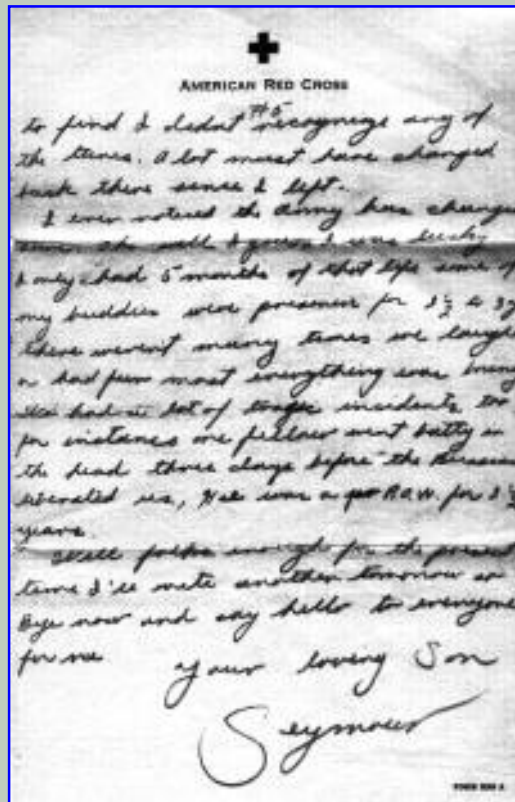 AMERICAN RED CROSS
#5
to find I didnt recognize any of
the tunes. A lot must have changed
back there sense I left.
I even noticed the Army has change
some. Ah well I guess I was lucky
I only had 5 months of that life some of
my buddies were prisoner for 2½ & 3y
there werent many times we laugh
or had fun most everything was
We had a lot of tragic incidents too
for instance one fellow went batty in
the head three days before the Russian
liberated us, He was a P.O.W. for 2½
years.
Well folks enough for the present
time I'll write another tomorrow so
Bye now and say hello to everyone
for me
Your loving Son
Seymour